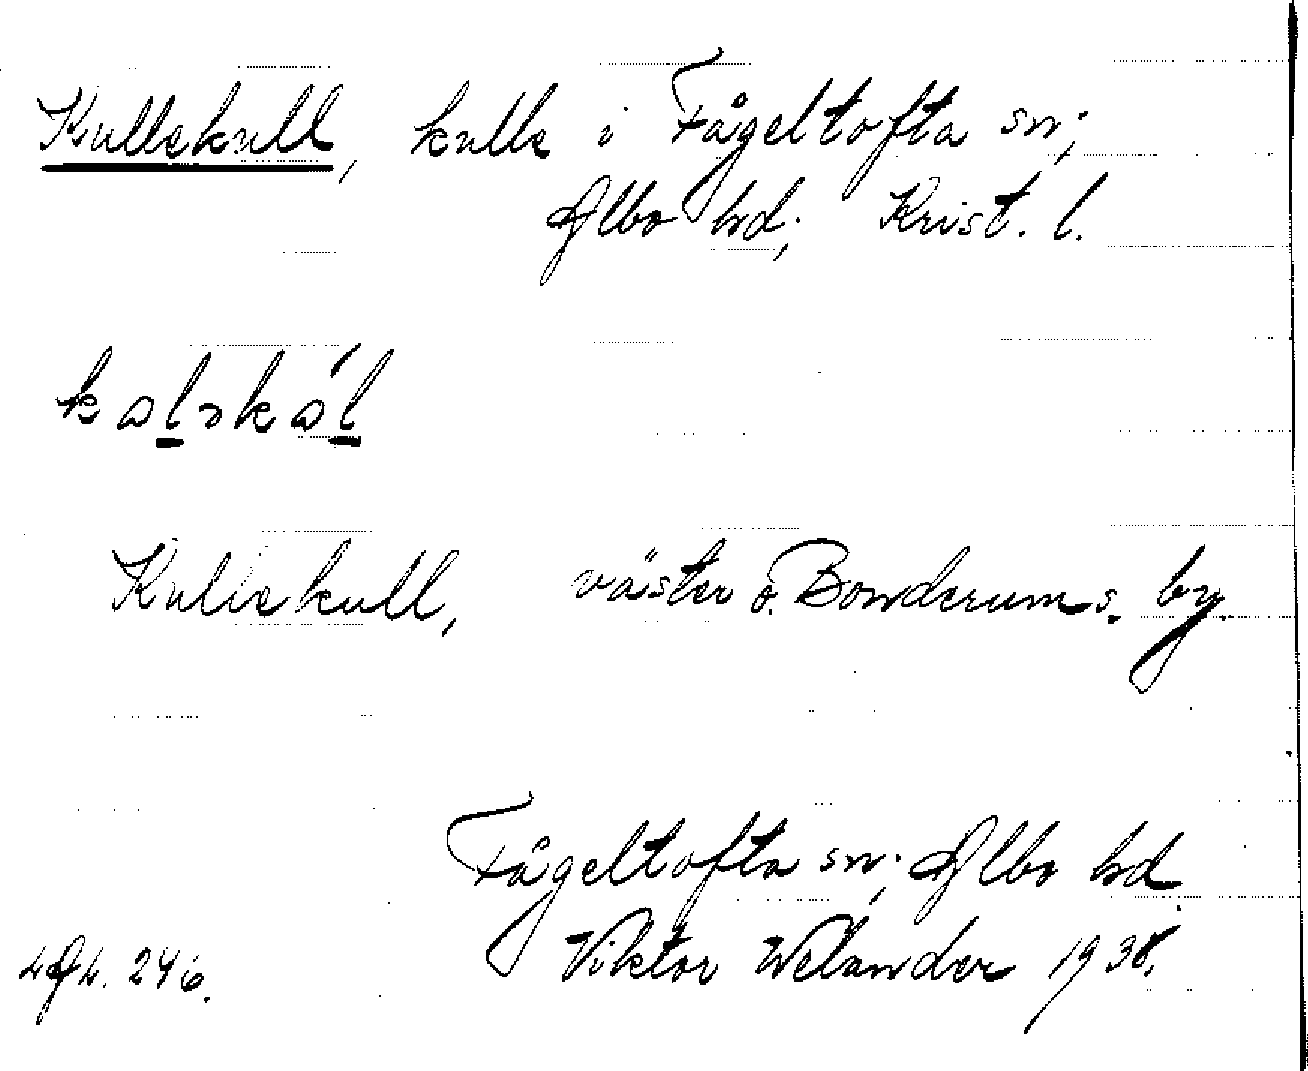 Kullekull, kulle i Fågeltofta sn;
Albo hd; Krist. l.
Kullekull, väster o. Bonderums. by.
Fågeltofta sn; Albo hd
Viktor Welander 1938.
246.